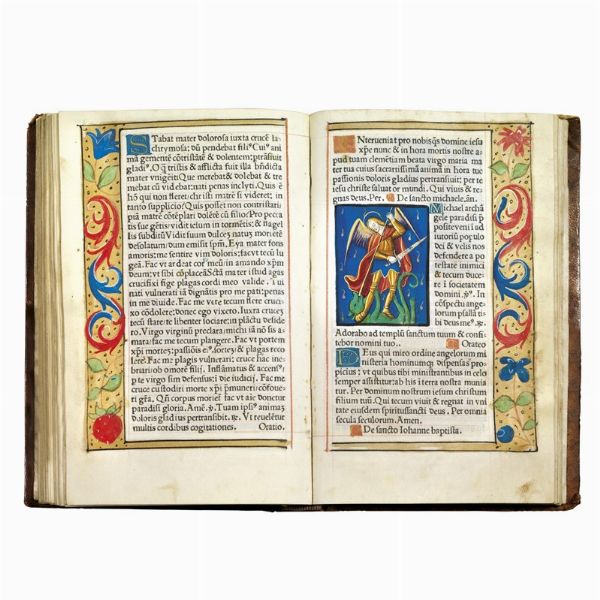 Stabat mater dolorosa iuxta crucē la-
chrymosa: dū pendebat fili⁹. Cui⁹ ani
mā gementē cōtristātē & dolentem: ptrāsiuit
gladi⁹. O q̄ tristis & afflicta fuit illa bn̄dicta
mater vnigēiti Que merebat & dolebat & tre
mebat cū videbat: nati penas inclyti. Quis ē
hō qui non fleret: christi matrē si videret: in
tanto supplicio? Quis posset non contristari:
piā matrē cōtēplari dolētē cū filio? Pro pecca
tis sue gētis: vidit iesum in tormētis: & flagel
lis subditū Vidit suum dulcez natuz morietē
desolatum: dum emisit spm̄. Eya mater fons
amoris: me sentire vim doloris: fac vt tecū lu
geā. Fac vt ardeat cor meū: in amando xp̄m
deum: vt sibi cōplaceā Sctā mater istud agas
crucifixi fige plagas cordi meo valide. Tui
nati vulnerati iā dignātis pro me pati: penas
in me diuide. Fac me vere tecum flere cruci-
xo cōdolere: donec ego vixero. Iuxta crucez
tecū stare te libenter sociare: in plāctu deside
ro. Virgo virginū preclara: michi iā nō sis a-
mara: fac me tecum plangere. Fac vt portem
xp̄i mortez: passiōis ei⁹ sortez & plagas reco
lere. Fac me plagis vulnerari: cruce hac ine-
briari: ob amorē filij. Inflāmatus & accens⁹
p te virgo sim defensus: in die iudicij. Fac me
cruce custodiri morte xp̄i p̄muneri: cōfoue-
ri grā. Qn̄ corpus morief fac vt aīe donetur
paradisi gloria. Amē. ꝟ. Tuam ipsi⁹ animaȝ
doloris gladius pertransibit. ℞. Vt reuelētur
multis cordibus cogitationes. Oratio.
INterueniat pro nobis q̄s domine iesu
xp̄e nunc & in hora mortis nostre a-
pud tuam clemētiam beata virgo maria ma
ter tua cuius sacratissimā animā in hora tue
passionis doloris gladius pertransiuit: per te
iesu christe saluator mundi. Qui viuis & re-
gnas deus. Per. De sancto michaele. añ.
Michael archā
gele paradisi p̄
posite veni ī ad
iutoriū populo
dei & velis nos
defendere a po
testate inimici
& tecum duce
re ī societatem
domini. ꝟ. In
cōspectu ange
lorum psallā ti
bi deus me⁹. ℞.
Adorabo ad templū sanctum tuum & confi-
tebor nomini tuo.. Oratio
DEus qui miro ordine angelorum mi
nisteria hominumq̨ dispensas: p̄o
picius: vt quibus tibi ministrantibus in celo
semper assistitur: ab his in terra nostra munia
tur. Per dominum nostrum iesum christum
filium tuū. Qui tecum viuit & regnat in vni
tate eiusdem spiritussancti deus. Per omnia
secula seculorum. Amen.
De sancto Iohanne baptista.